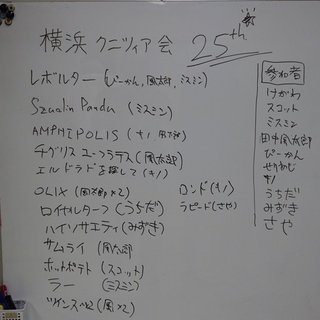 横浜 クニツィア会 25th
レボルター (ぴーかん,風太郎,ミスミン)
(ミスミン)
AMPHIPOLIS (キノ 風太郎)
チグリス ユーフラテス (風太郎)
エルドラドを探して (キノ)
OLIX (風太郎×2)
ロイヤルターフ (うちだ)
ハイソサエティ (みずき)
サムライ (風太郎
ホットポテト (スコット)
ラー (ミスミン)
ロンド (キノ)
ラピード (さや)
参加者
けがわ
スコット
ミスミン
田中風太郎
ぴーかん
キノ
うちだ
みずき
さや